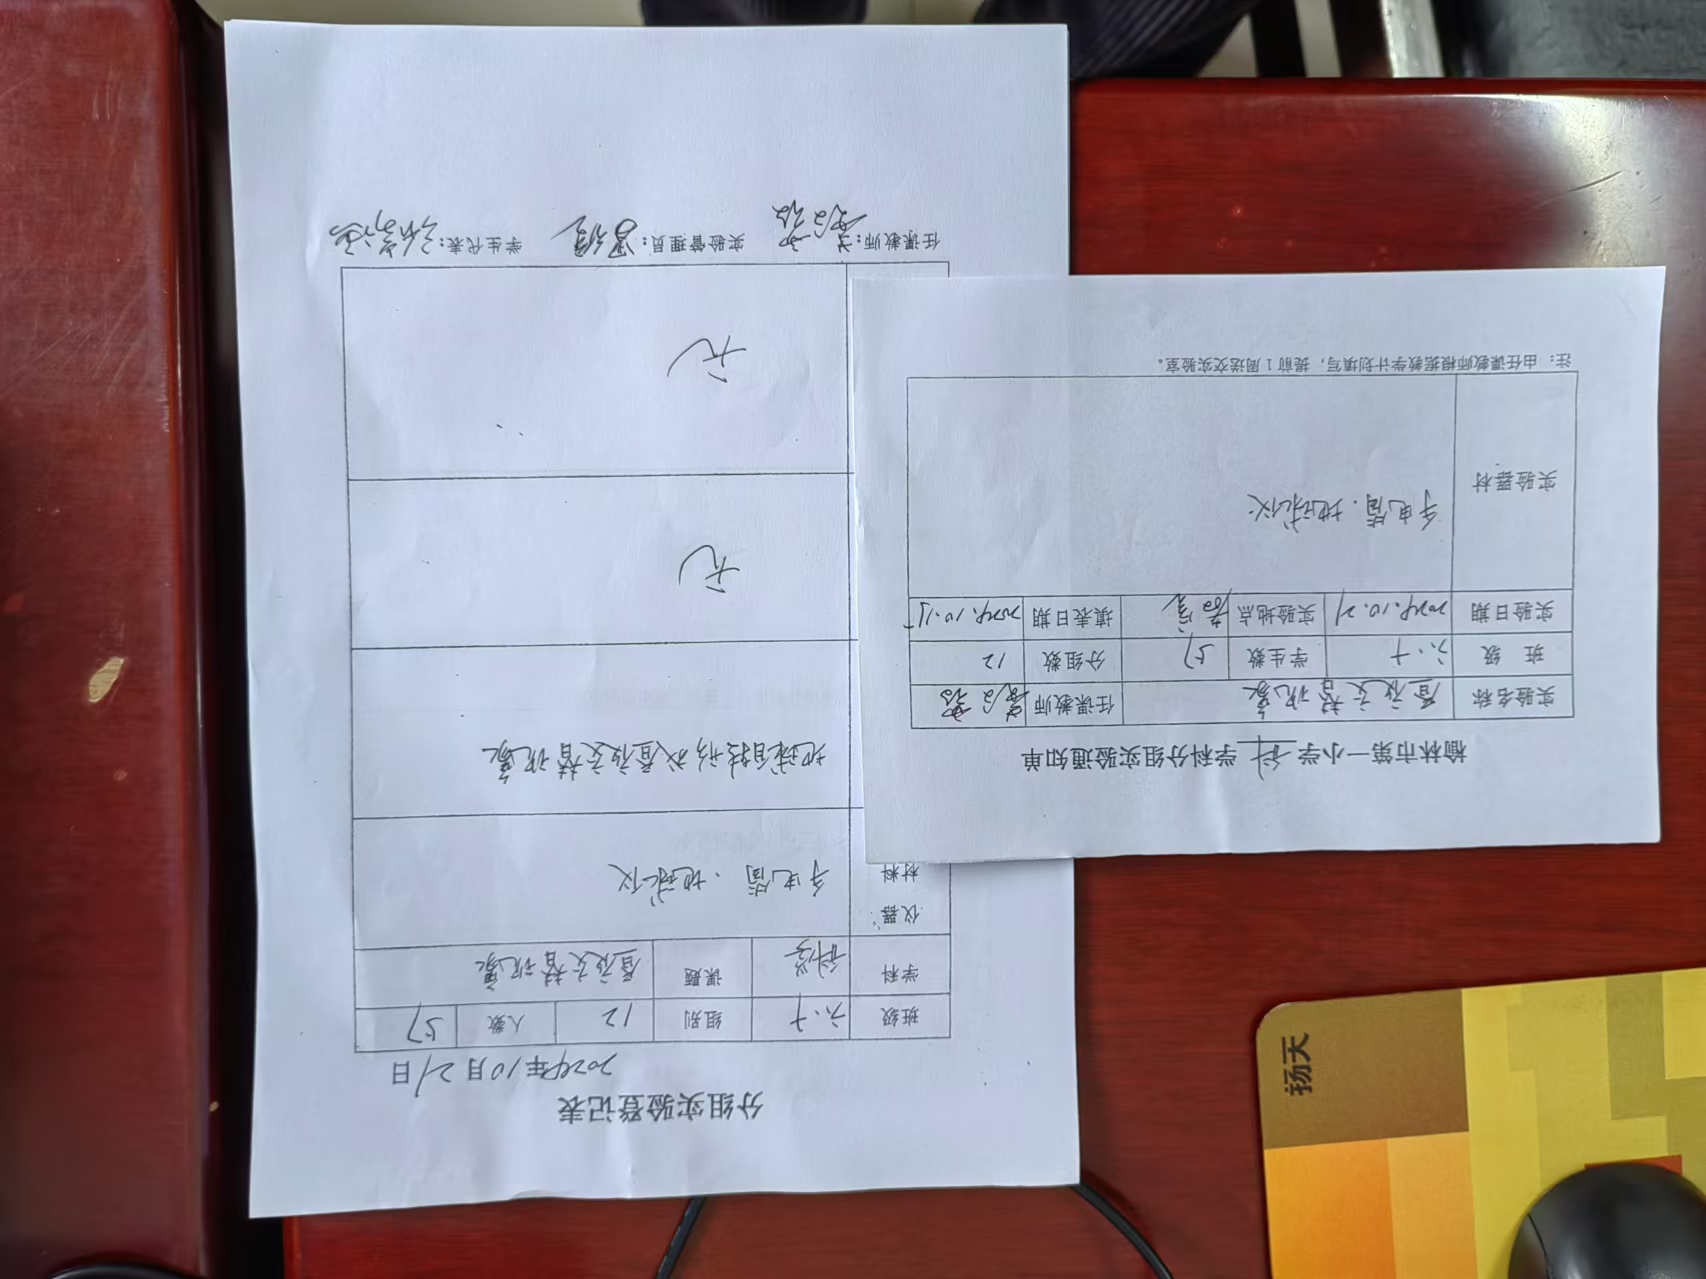 分组实验登记表
2024年10月21日
班级 六.十 组别 12 人数 57
学科 科学 课题 昼夜交替现象
仪器
材料 手电筒．地球仪
地球自转形成昼夜交替现象
无
无
任课教师： 实验管理员： 学生代表：
榆林市第一小学 科 学科分组实验通知单
实验名称 昼夜交替现象 任课教师
班 级 六.十 学生数 57 分组数 12
实验日期 2024.10.21 实验地点 填表日期 2024.10.15
实验器材 手电筒．地球仪
注：由任课教师根据教学计划填写，提前1周送交实验室。
扬天